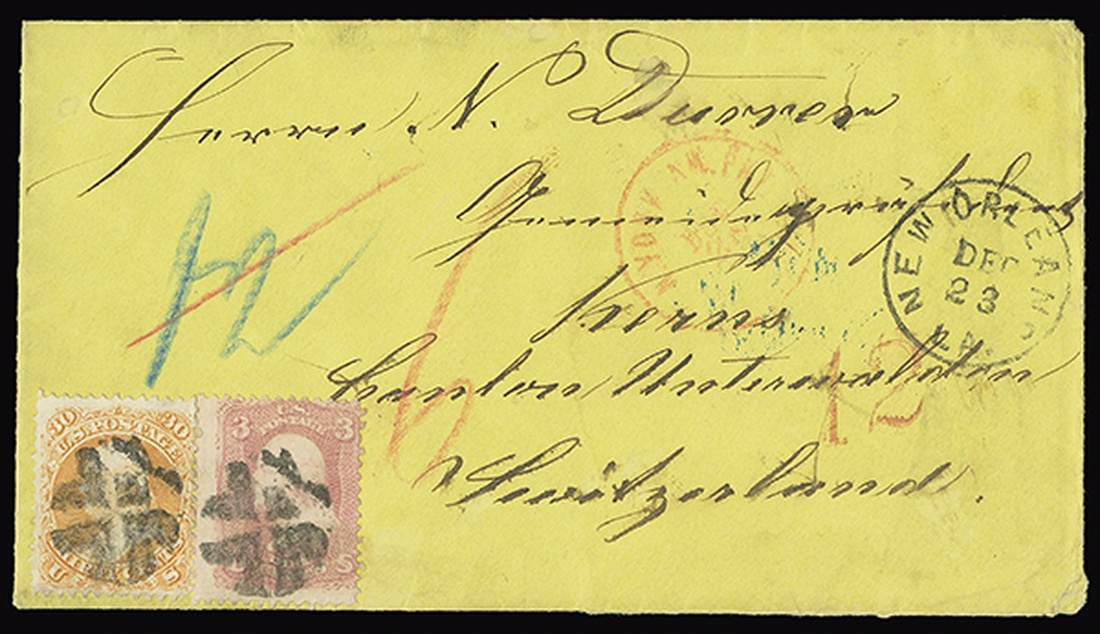 Herrn N. Durrer
Gemeindepräsident
Kerns
Canton Unterwalden
Switzerland.
NEW ORLEANS
DEC
23
LA.
12
12
N. YORK AM. PKT
30 30
U.S. POSTAGE
U S
3 3
U.S.
POSTAGE